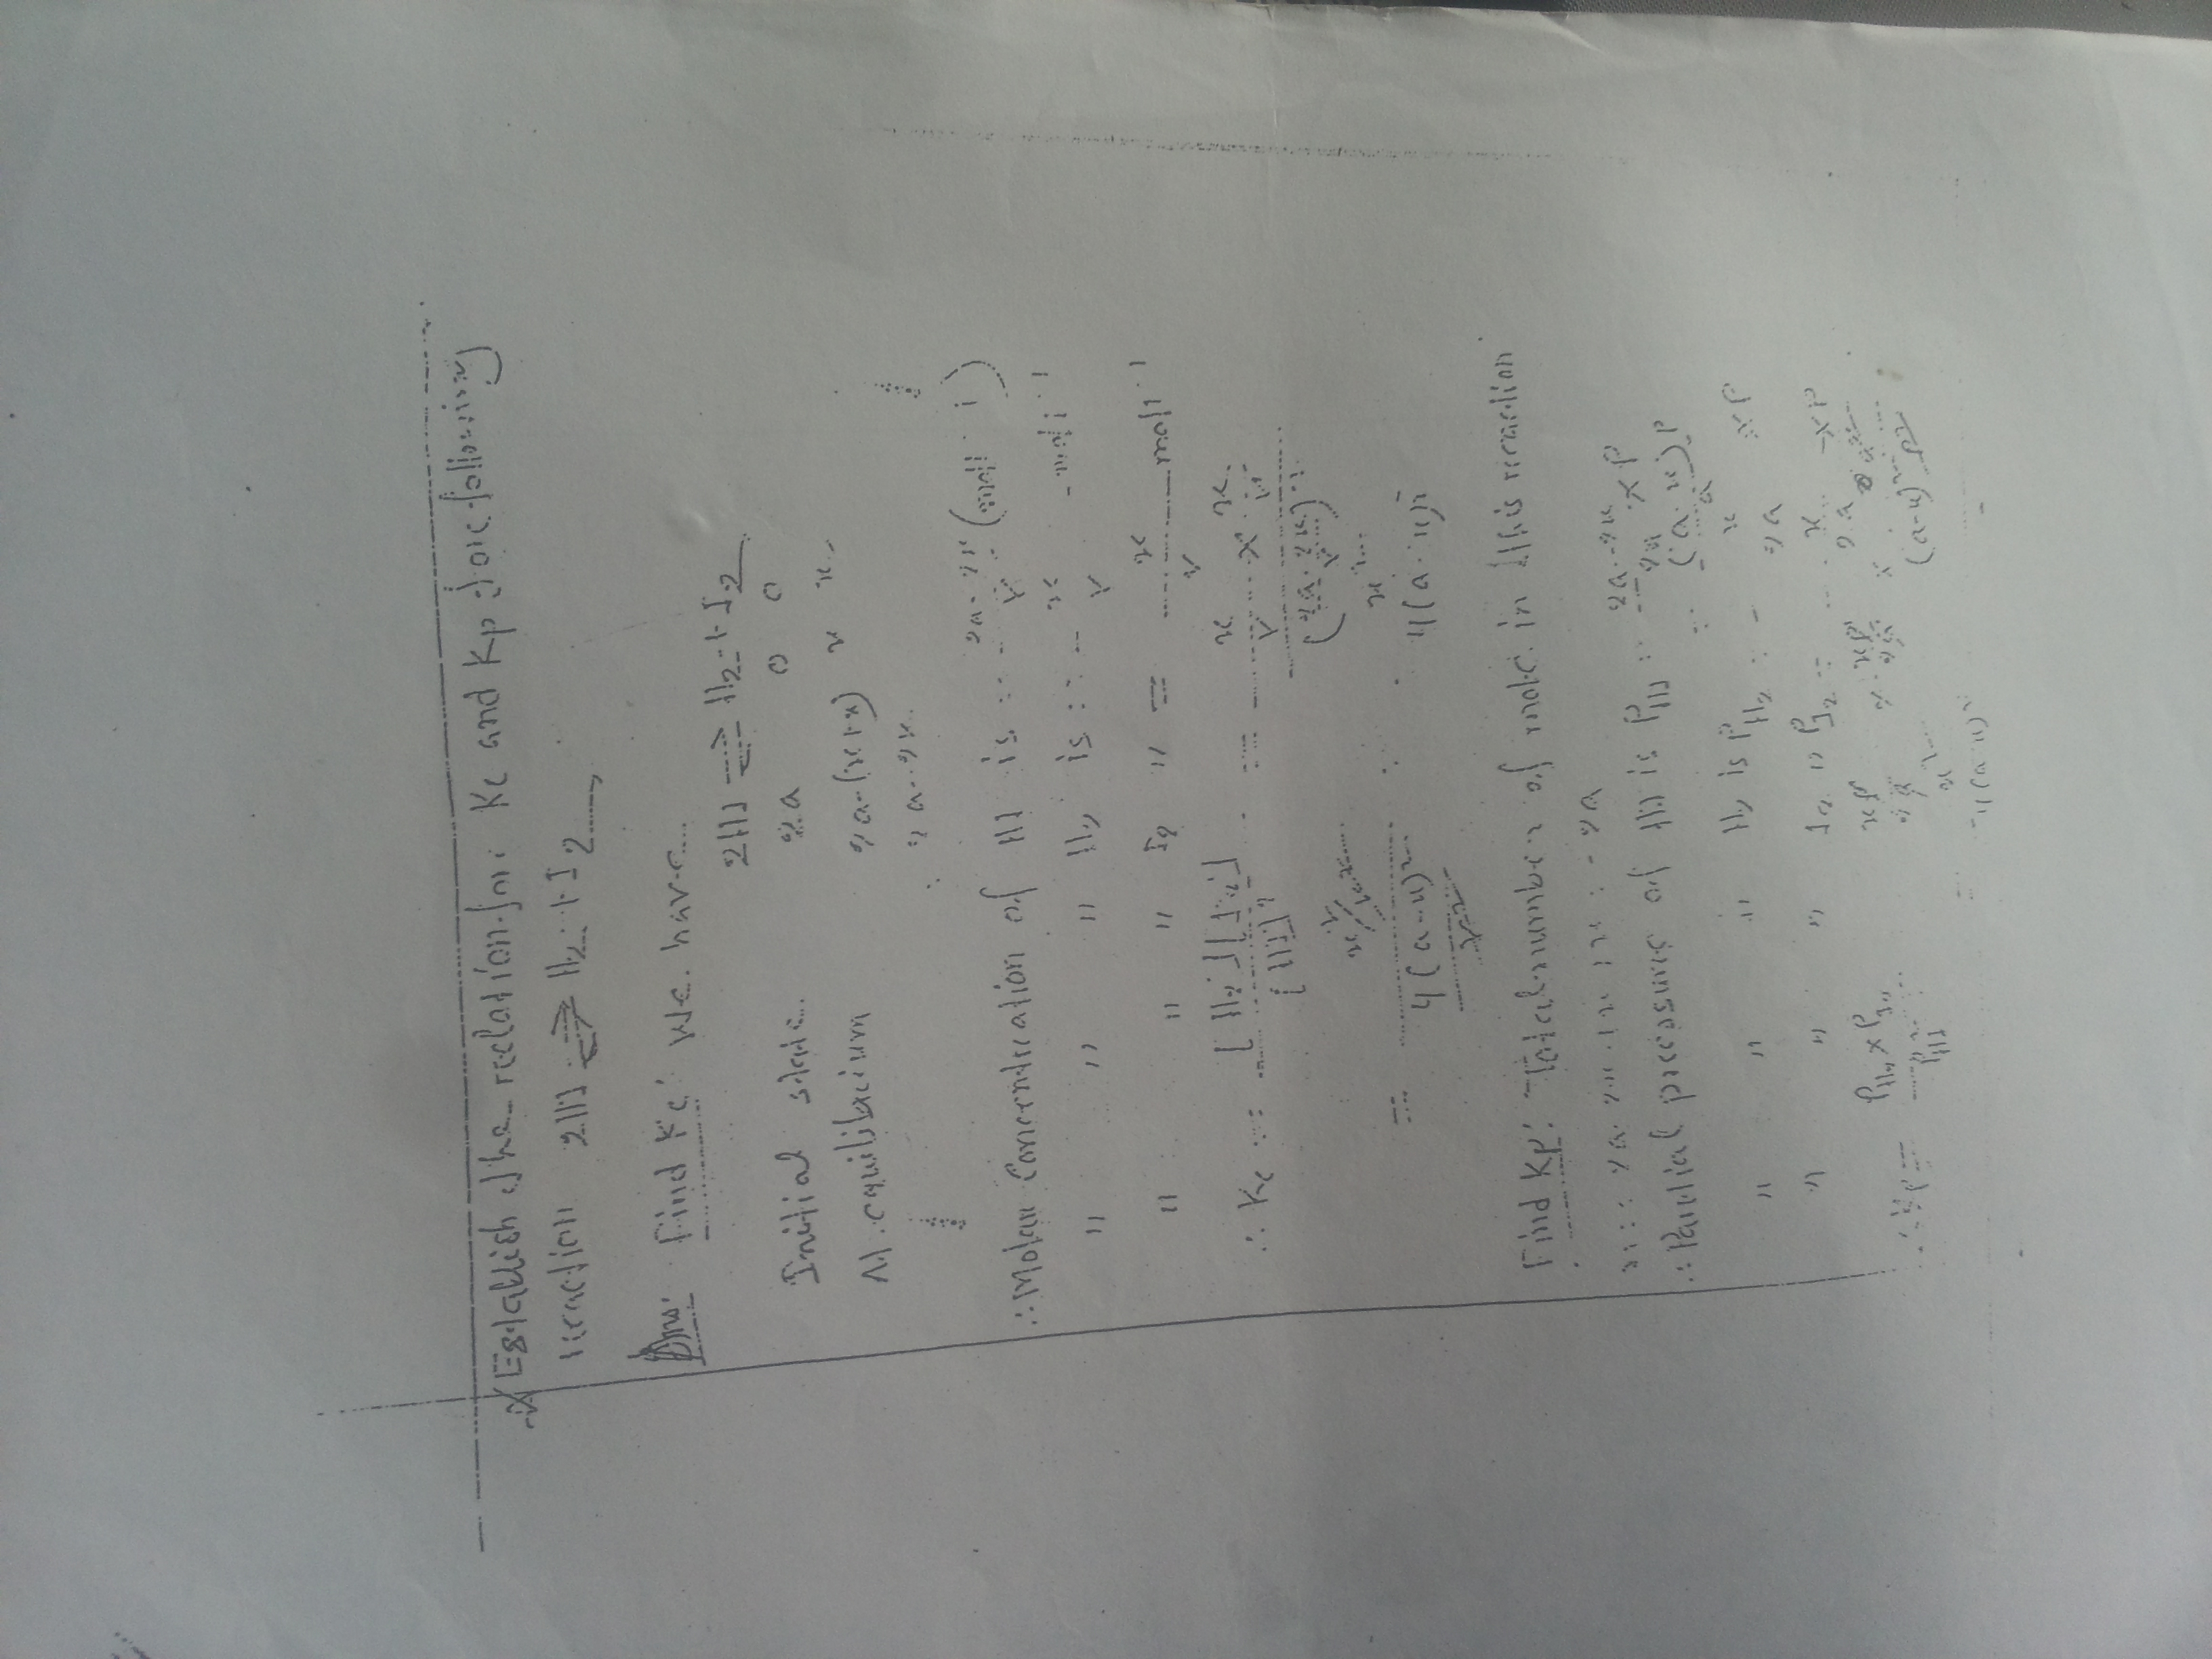 Establish the reelation for Kc and Kp fore following
reeaction 2HI ⇌ H2 + I2
Ans: Find Kc: We have
2HI ⇌ H2 + I2
Initial state 2a 0 0
At equilibrcium 2a-(x+x) x x
2a-2x
∴ Molarc Concentrcation of HI is = (2a-2x)/V (mol l^-1)
" " " H2 is = x/V mol l^-1
" " " I2 " = x/V mol l^-1
∴ Kc = [H2][I2]/[HI]^2 = (x/V × x/V)/((2a-2x)/V)^2
= (x^2/V^2)/(4(a-x)^2/V^2) = x^2/4(a-x)^2
Find Kp: Total number of mole in this reeaction
= 2a-2x+x+x = 2a
∴ Parctial preessure of HI is P_HI = (2a-2x)/2a × P
= (a-x)P/a
" " " H2 is P_H2 = x/2a × P
" " " I2 " P_I2 = x/2a × P
∴ Kp = (P_H2 × P_I2)/P_HI^2 xP/2a × xP/2a (a-x)^2 P^2
= x^2/4(a-x)^2